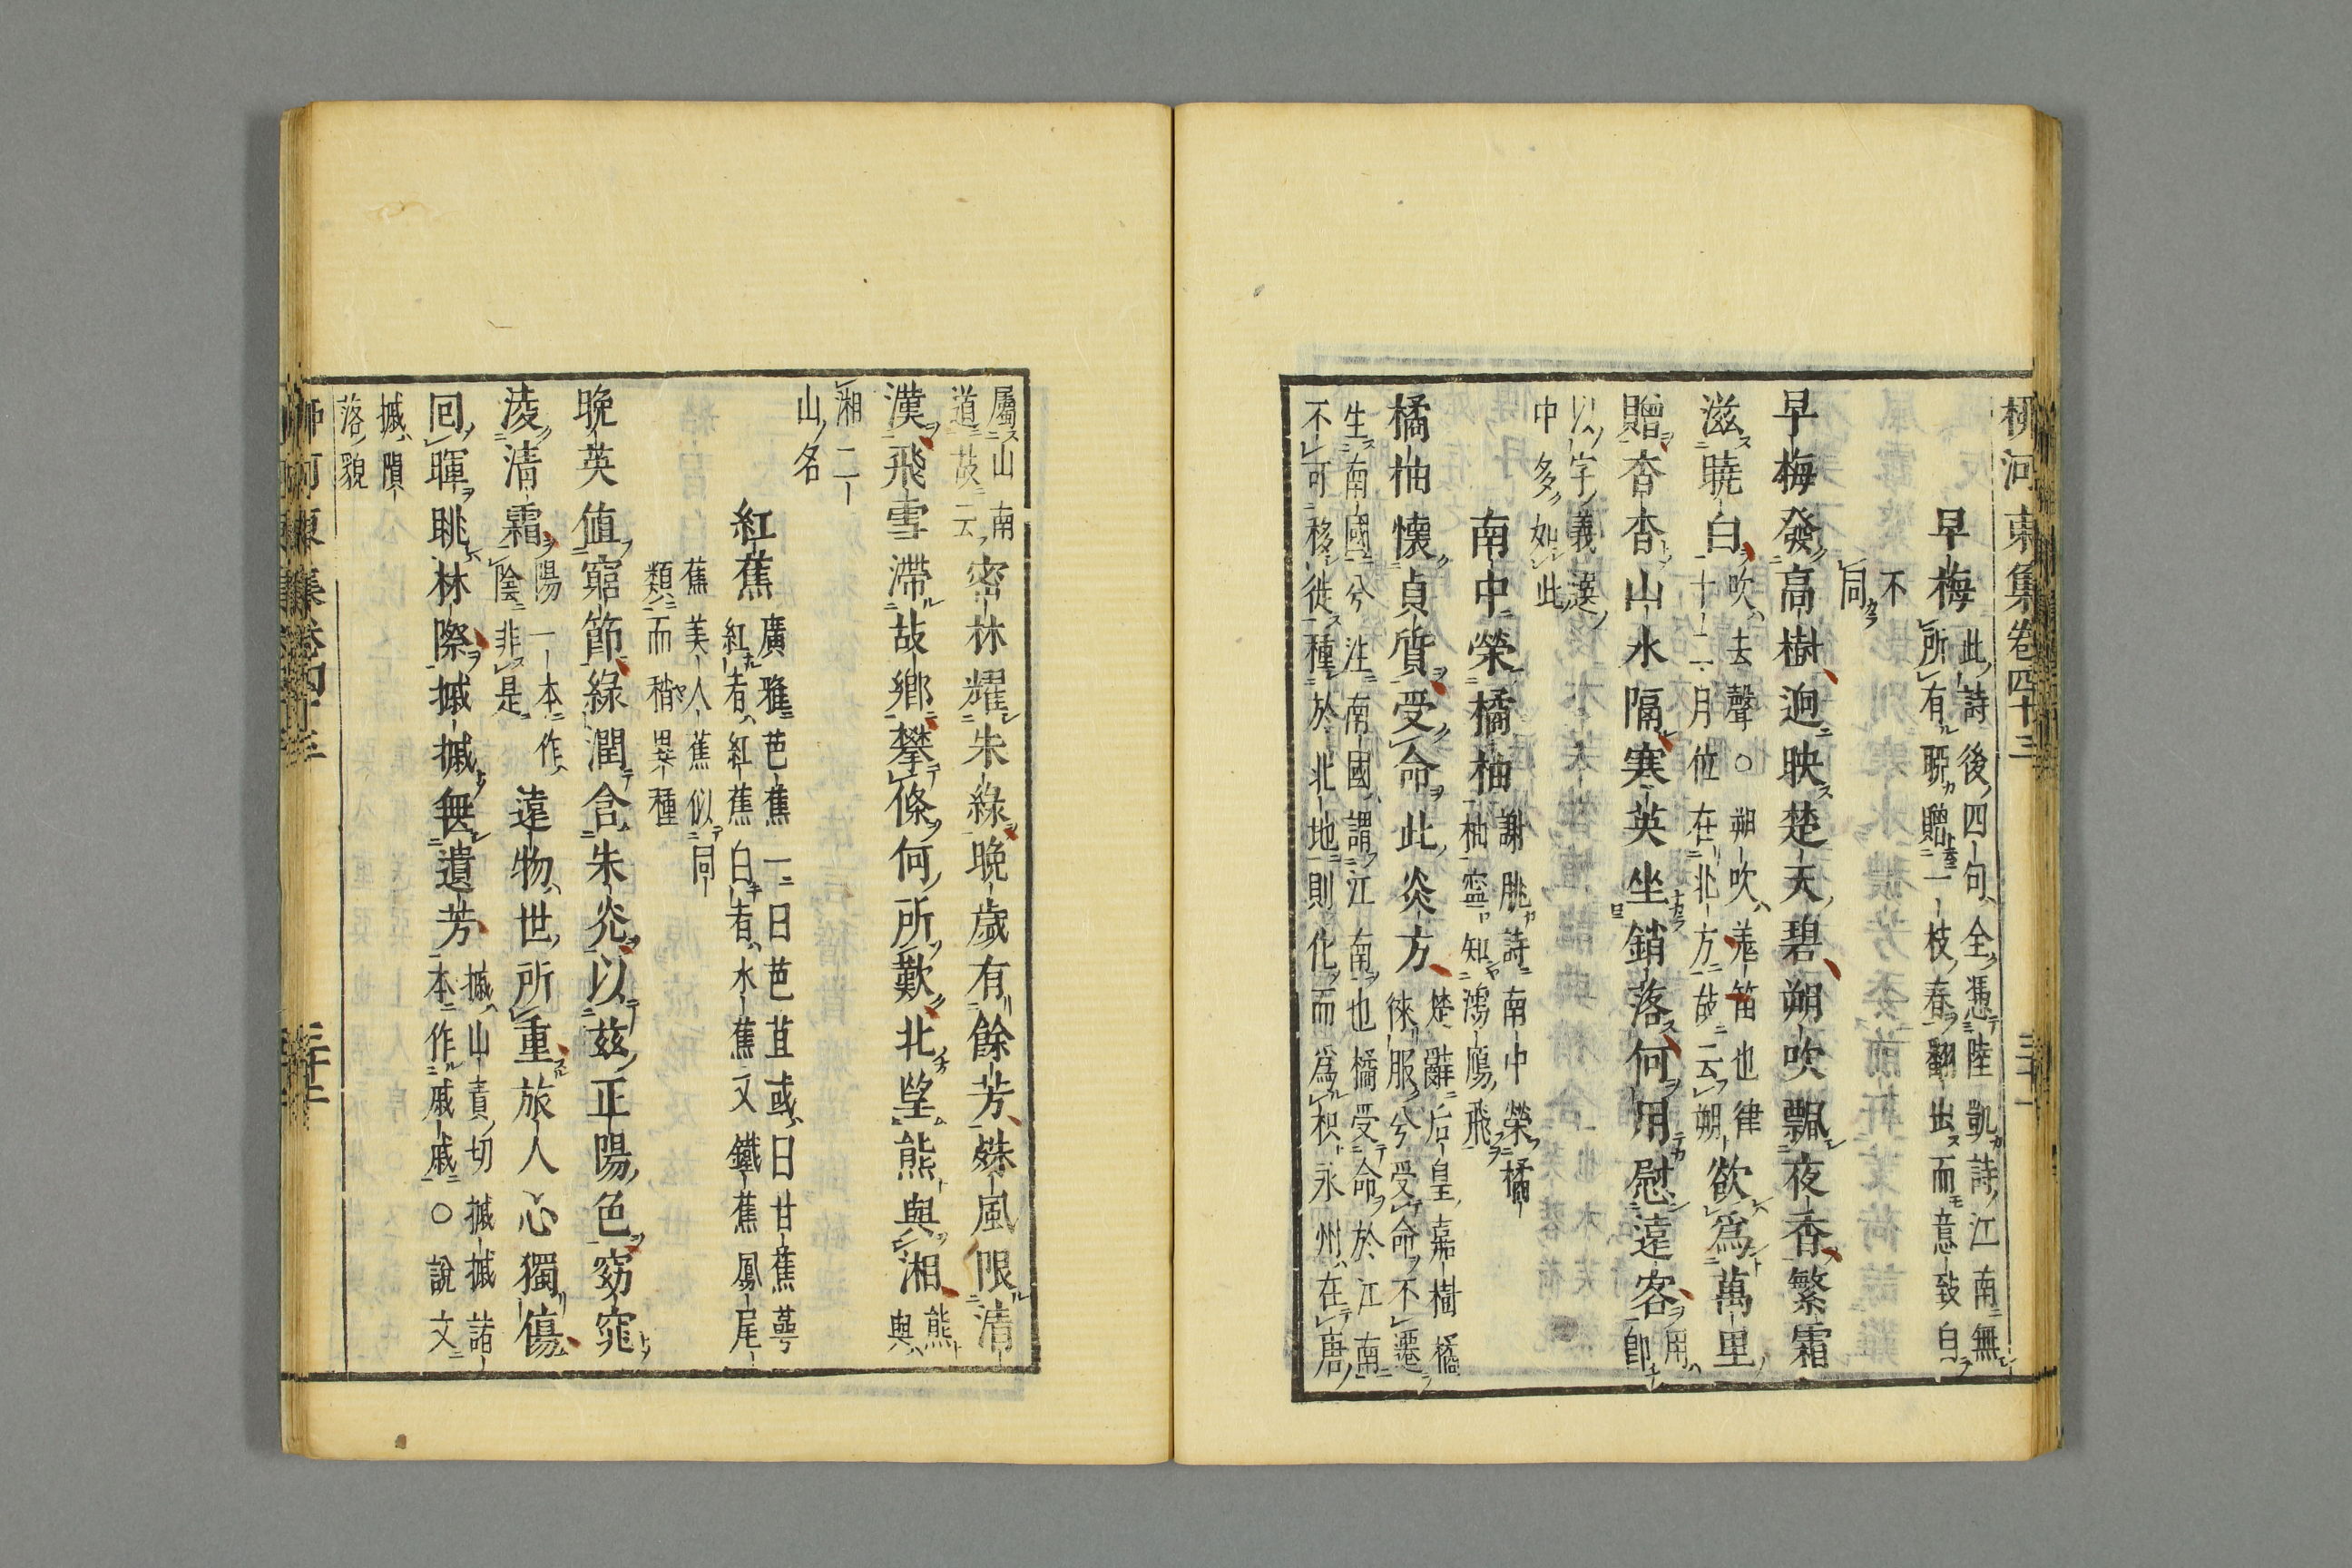 柳河東集卷四十三 三十一
早梅 此詩後四句全憑陸凱詩江南無
所有聊贈一枝春翻出而意致自
不
同
早梅發高樹逈映楚天碧朔吹飄夜香繁霜
滋曉白 吹去聲○朔吹羗笛也律
十二月位在北方故云朔 欲爲萬里
贈杳杳山水隔寒英坐銷落何用慰遠客 用
卽
以字義漢
中多如此
南中榮橘柚 謝朓詩南中榮橘
柚寧知鴻鴈飛
橘柚懷貞質受命此炎方 楚辭后皇嘉樹橘
徠服兮受命不遷
生南國兮注南國謂江南也橘受命於江南
不可移徙種於北地則化而爲枳永州在唐
屬山南
道故云 密林耀朱綠晚歲有餘芳殊風限清
漢飛雪滯故鄉攀條何所歎北望熊與湘 熊
與
湘二
山名
紅蕉 廣雅芭蕉一曰芭苴或曰甘蕉蕚
紅者紅蕉白者水蕉又鐵蕉鳳尾
蕉美人蕉似同
類而稍異種
晚英值窮節綠潤含朱光以茲正陽色窈窕
淩清霜 陽一本作
陰非是 遠物世所重旅人心獨傷
回暉眺林際摵摵無遺芳 摵山責切摵摵諸
本作戚戚○說文
摵隕
落貌
柳河東集卷四十三 三十二